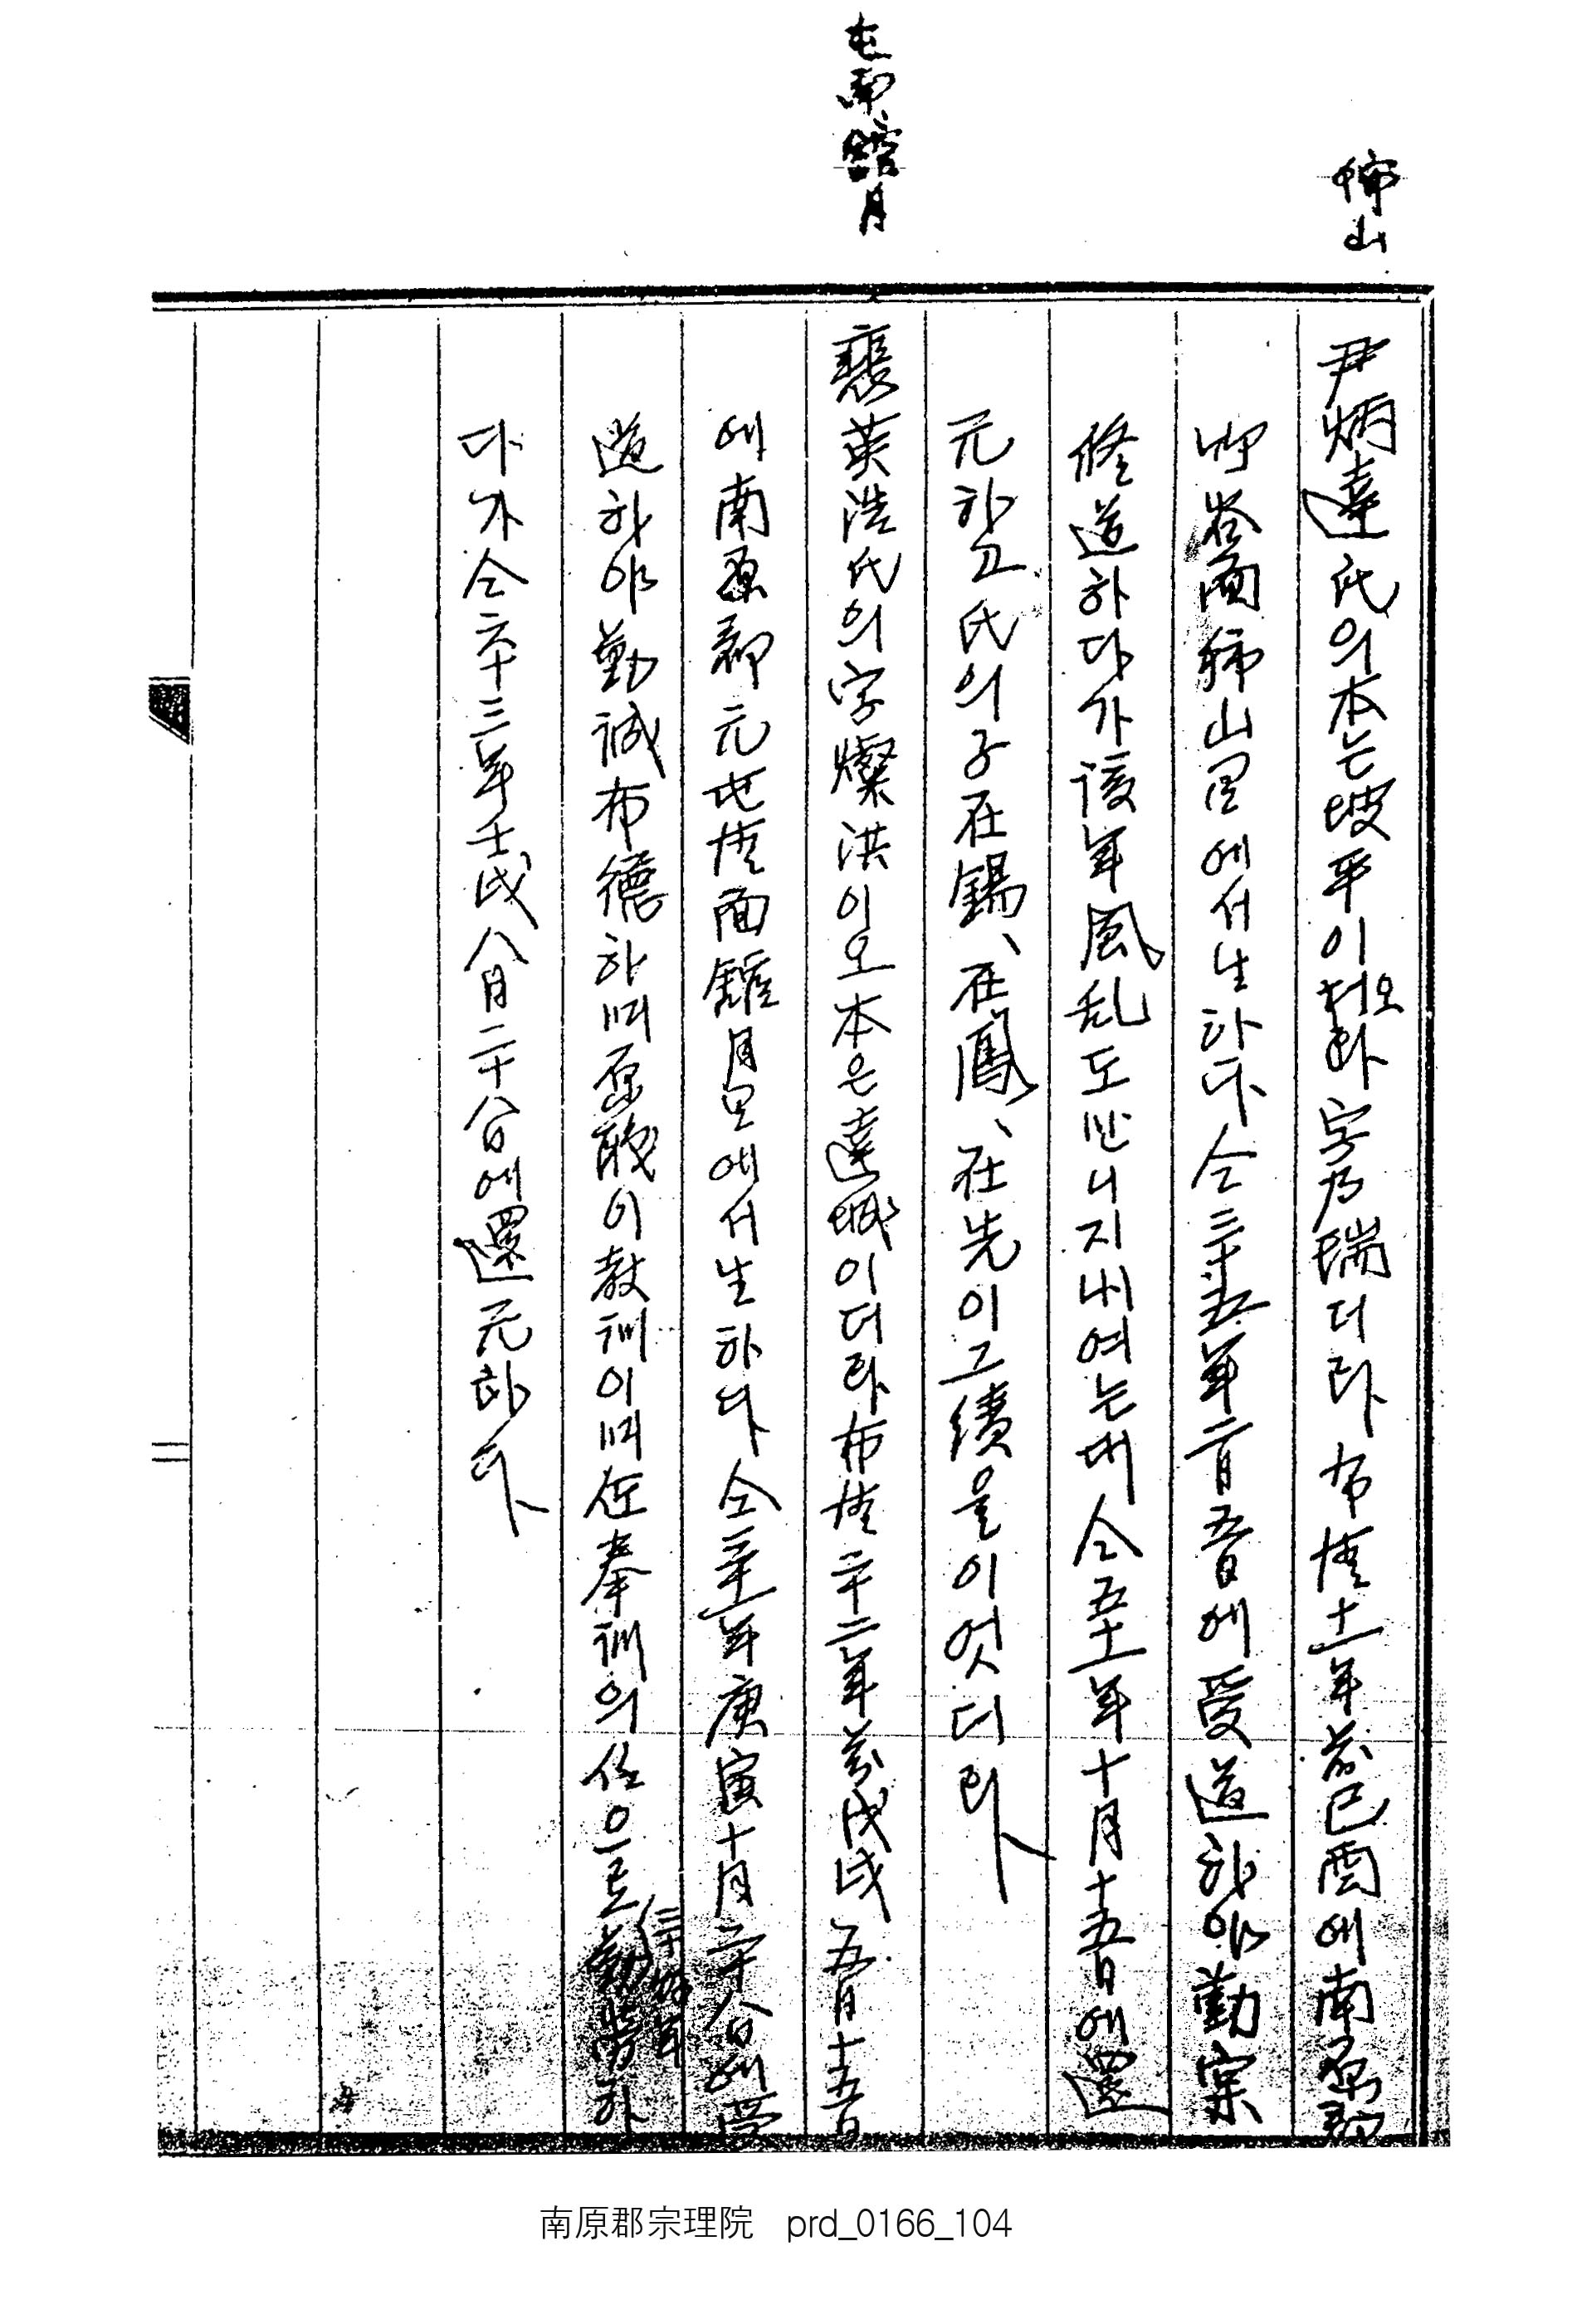 山
屯南舘月
尹炳達氏의本는坡平이오字乃瑞더라布德十一年前己酉에南原郡
面山里에서生하다仝三十五年二月五日에受道하야勤实
修道하다가該年風乱도브니지내여는대仝五十一年十月十五日에還
元하고氏의子在錫、在鳳、在先이그績을이엇더라
裵英浩氏의字燦洪이오本은達城이더라布德二十二年前戊戌五月十五日
에南原郡元地德面舘月里에서生하다仝三十一年庚寅十月二十八日에受
道하야勤誠布德하며原職이教訓이며近奉訓의任으로勤勞하
다가仝六十三年壬戌八月二十八日에還元하다
南原郡宗理院 prd_0166_104